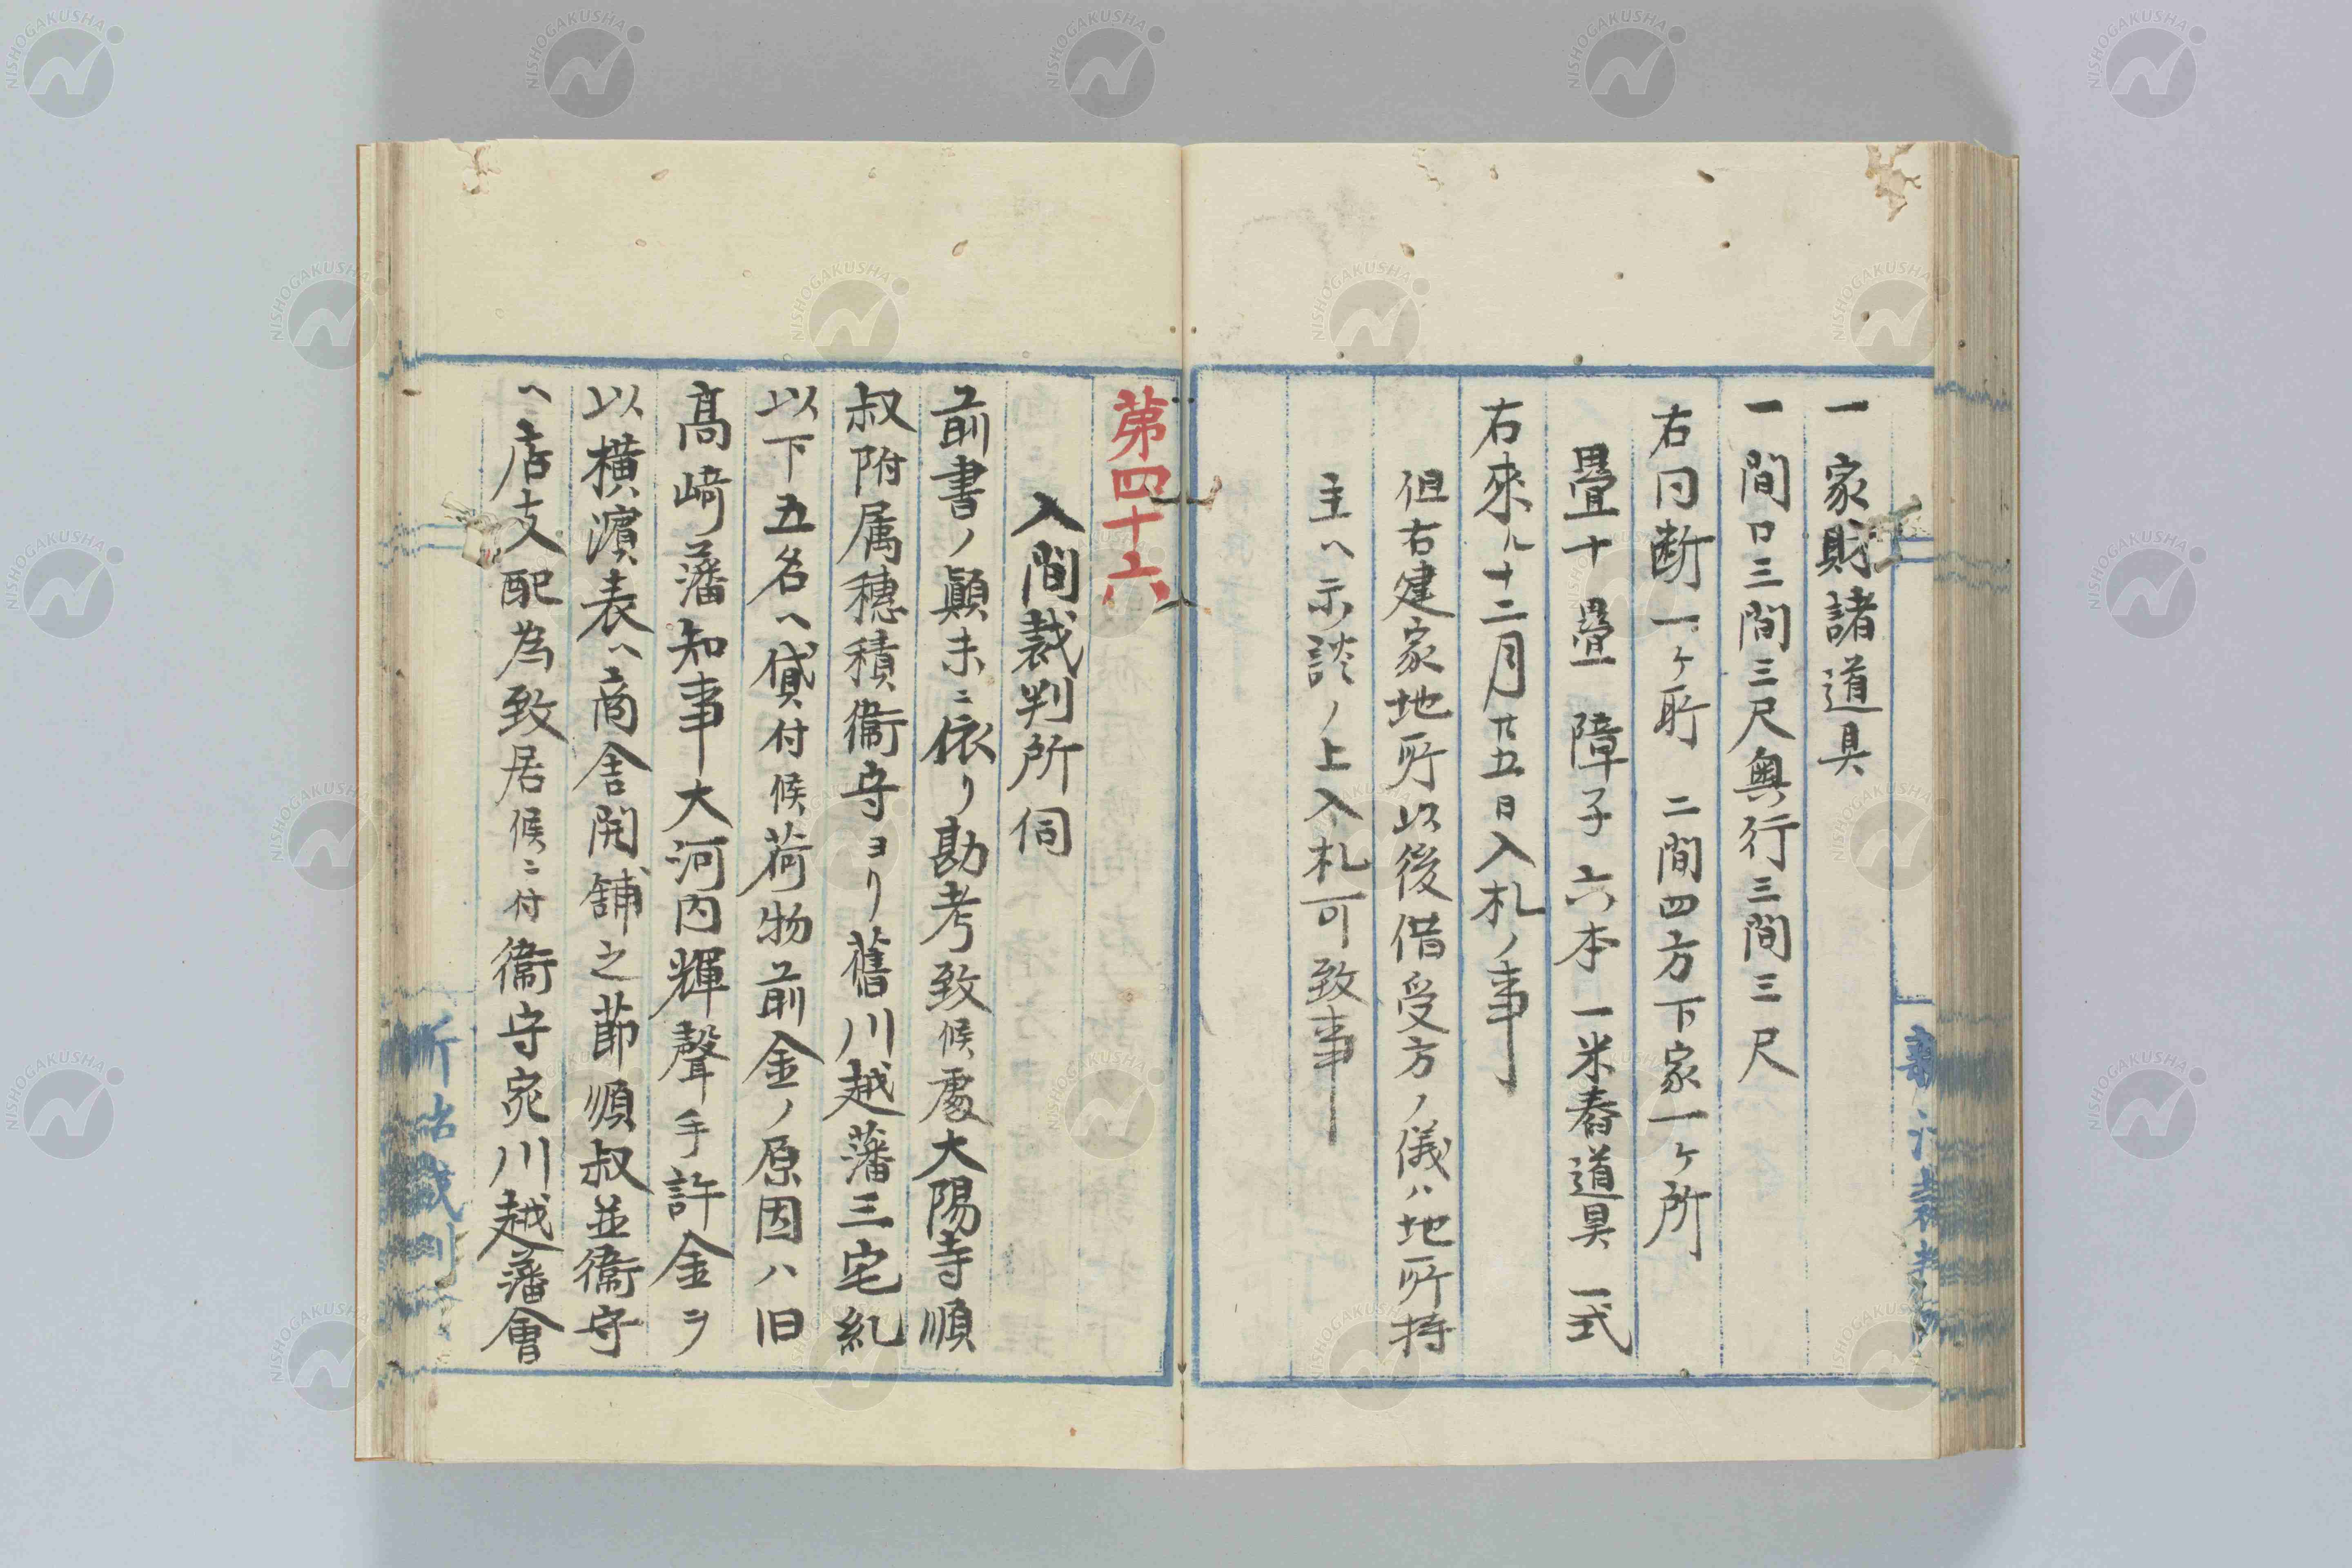 一 家財諸道具
一 間口三間三尺奥行三間三尺
右同断一ヶ所 二間四方下家一ヶ所
畳十畳 障子六本 一米舂道具 一式
右來ル十二月廿五日入札ノ事
但右建家地所以後借受方ノ儀ハ地所持
主ヘ示談ノ上入札可致事
第四十六
入間裁判所伺
前書ノ顛末ニ依リ勘考致候處大陽寺順
叔附属穂積衞守ヨリ舊川越藩三宅糺
以下五名ヘ貸付候荷物前金ノ原因ハ旧
髙﨑藩知事大河内輝聲手許金ヲ
以横濵表ヘ商舎開舗之節順叔並衞守
ヘ店支配為致居候ニ付衞守宛川越藩會
NISHOGAKUSHA